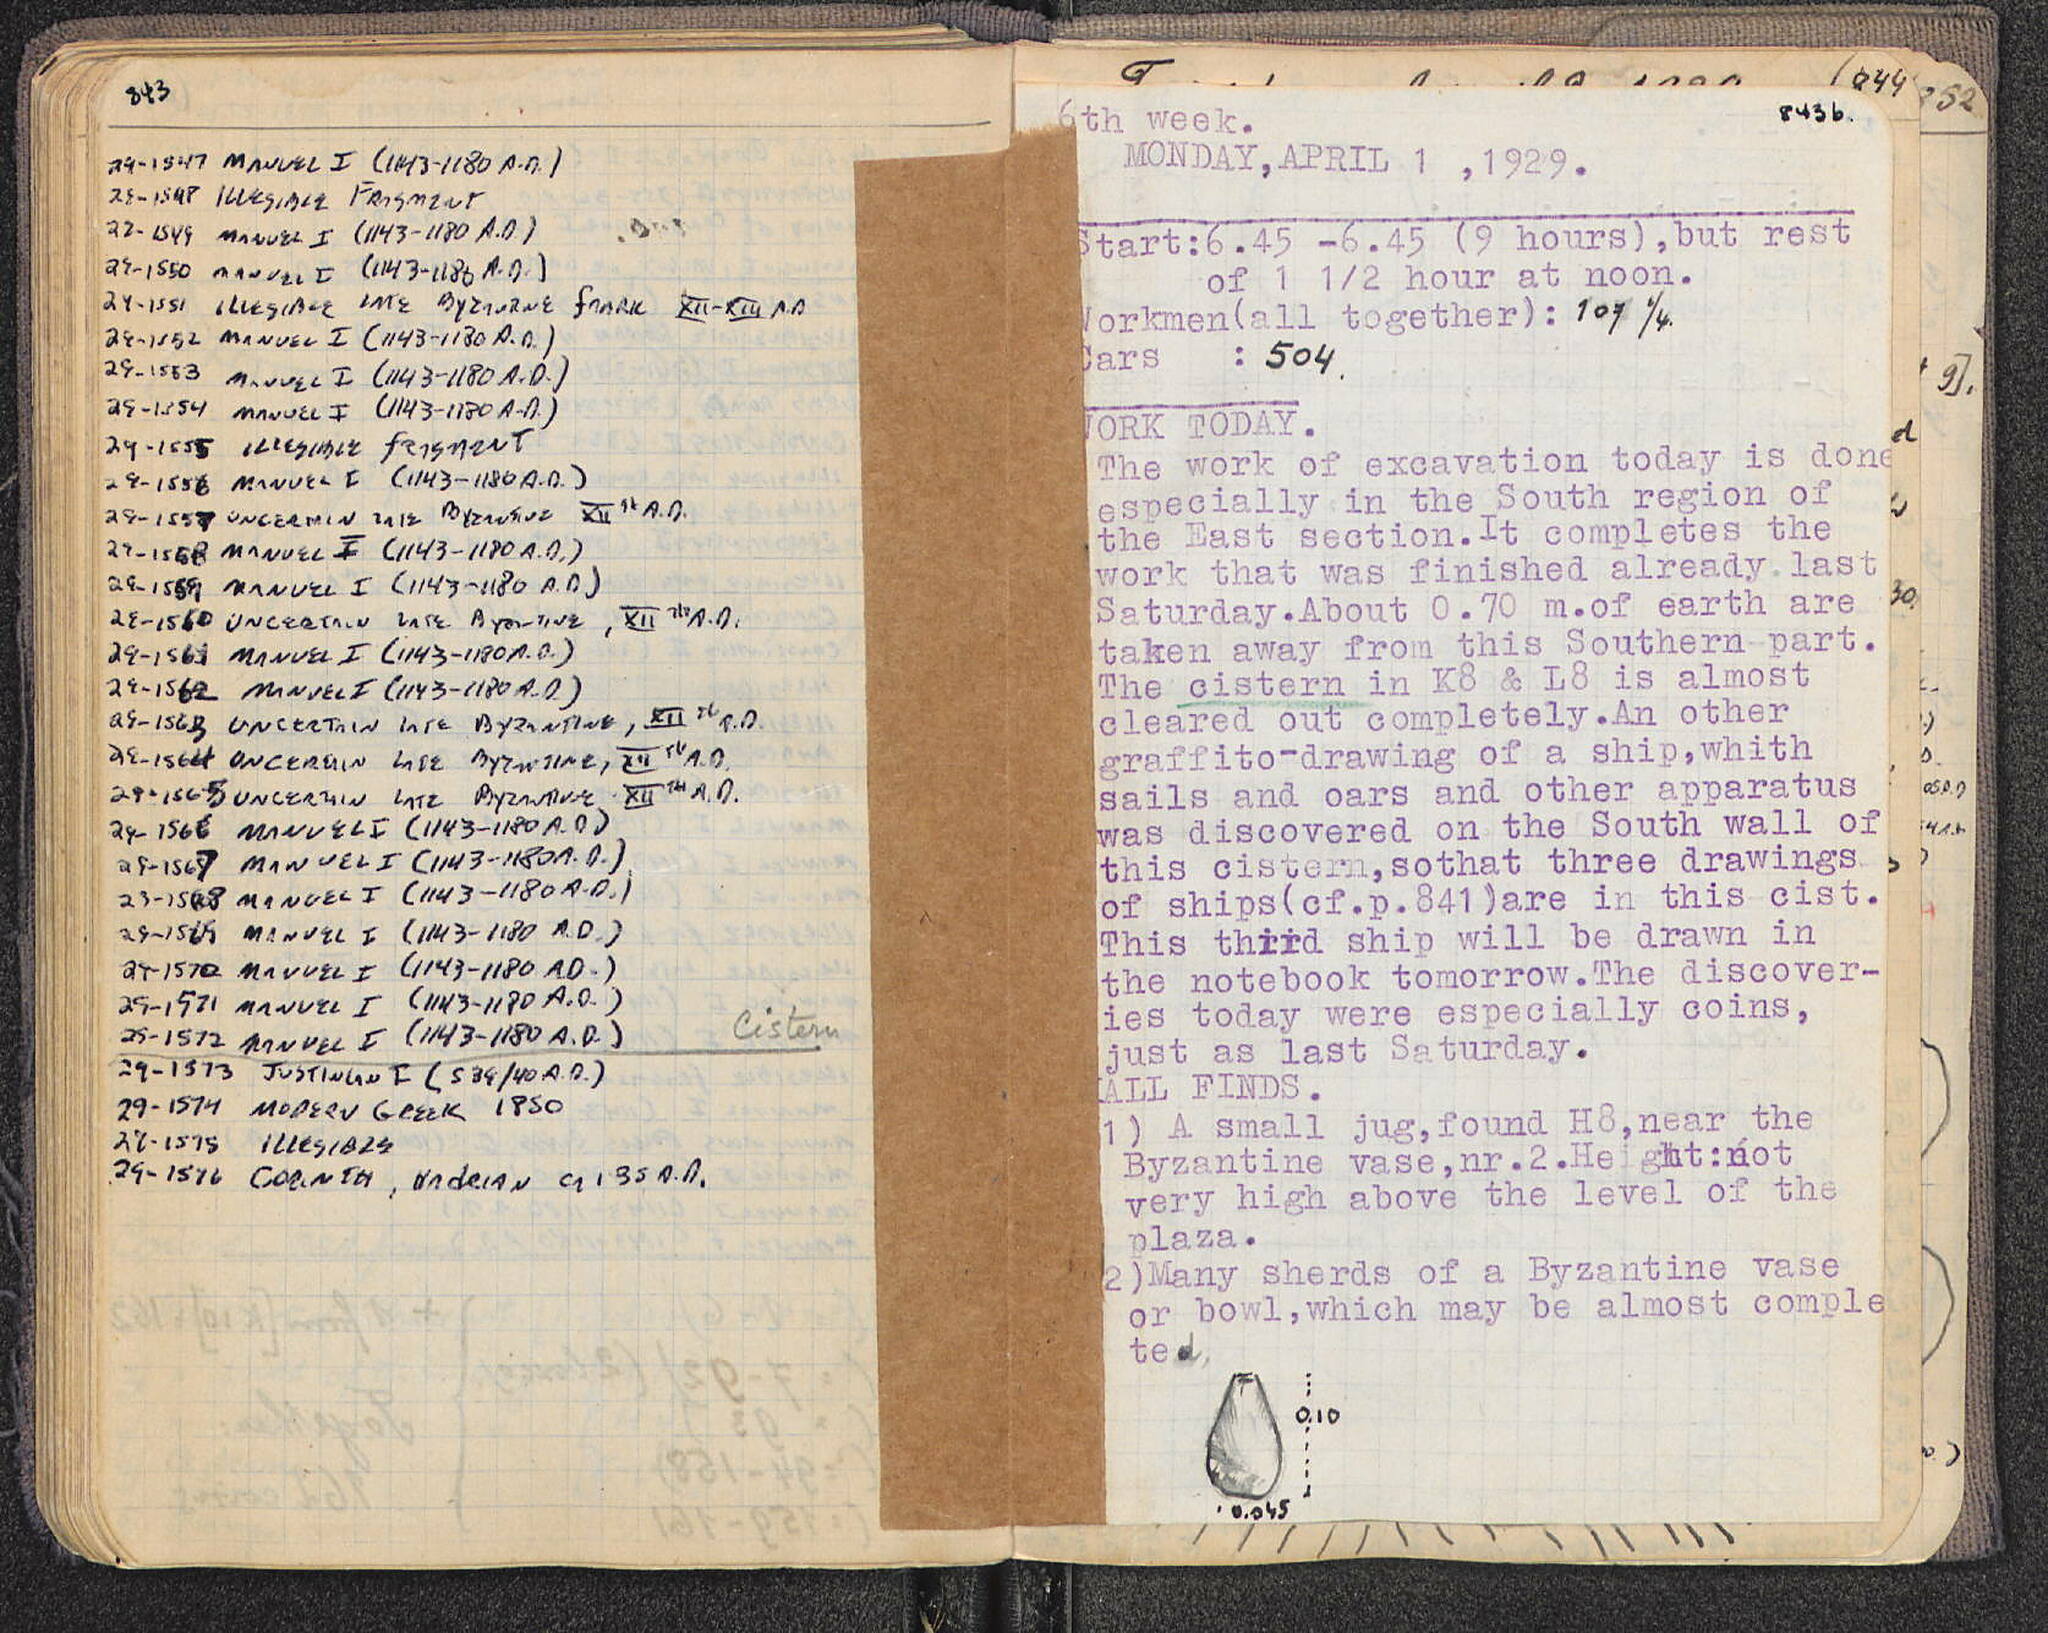 843
29-1547 MANUEL I (1143-1180 A.D.)
29-1548 ILLEGIBLE FRAGMENT
29-1549 MANUEL I (1143-1180 A.D.)
29-1550 MANUEL I (1143-1180 A.D.)
29-1551 ILLEGIBLE LATE BYZANTINE FRANK XII-XIII A.D
29-1552 MANUEL I (1143-1180 A.D.)
29-1553 MANUEL I (1143-1180 A.D.)
29-1554 MANUEL I (1143-1180 A.D.)
29-1555 ILLEGIBLE FRAGMENT
29-1556 MANUEL I (1143-1180 A.D.)
29-1557 UNCERTAIN LATE BYZANTINE XII th A.D.
29-1558 MANUEL I (1143-1180 A.D.)
29-1559 MANUEL I (1143-1180 A.D)
29-1560 UNCERTAIN LATE BYZANTINE, XII th A.D.
29-1561 MANUEL I (1143-1180 A.D.)
29-1562 MANUEL I (1143-1180 A.D)
29-1563 UNCERTAIN LATE BYZANTINE, XII th A.D.
29-1564 UNCERTAIN LATE BYZANTINE, XII th A.D.
29-1565 UNCERTAIN LATE BYZANTINE XII TH A.D.
29-1566 MANUEL I (1143-1180 A.D)
29-1567 MANUEL I (1143-1180 A.D.)
29-1568 MANUEL I (1143-1180 A.D.)
29-1569 MANUEL I (1143-1180 A.D.)
29-1570 MANUEL I (1143-1180 A.D.)
29-1571 MANUEL I (1143-1180 A.D.)
29-1572 MANUEL I (1143-1180 A.D.) Cistern
29-1573 JUSTINIAN I (539/40 A.D.)
29-1574 MODERN GREEK 1850
29-1575 ILLEGIBLE
29-1576 CORINTH, HADRIAN CA 135 A.D.
(844
852
843b.
6th week.
MONDAY,APRIL 1 ,1929.
Start:6.45 -6.45 (9 hours),but rest
of 1 1/2 hour at noon.
Workmen(all together): 107 1/4.
Cars : 504.
WORK TODAY.
The work of excavation today is done
especially in the South region of
the East section.It completes the
work that was finished already last
Saturday.About 0.70 m.of earth are
taken away from this Southern part.
The cistern in K8 & L8 is almost
cleared out completely.An other
graffito-drawing of a ship,whith
sails and oars and other apparatus
was discovered on the South wall of
this cistern,sothat three drawings
of ships(cf.p.841)are in this cist.
This third ship will be drawn in
the notebook tomorrow.The discover-
ies today were especially coins,
just as last Saturday.
ALL FINDS.
1) A small jug,found H8,near the
Byzantine vase,nr.2.Height:not
very high above the level of the
plaza.
2)Many sherds of a Byzantine vase
or bowl,which may be almost comple
ted,
0.10
0.045